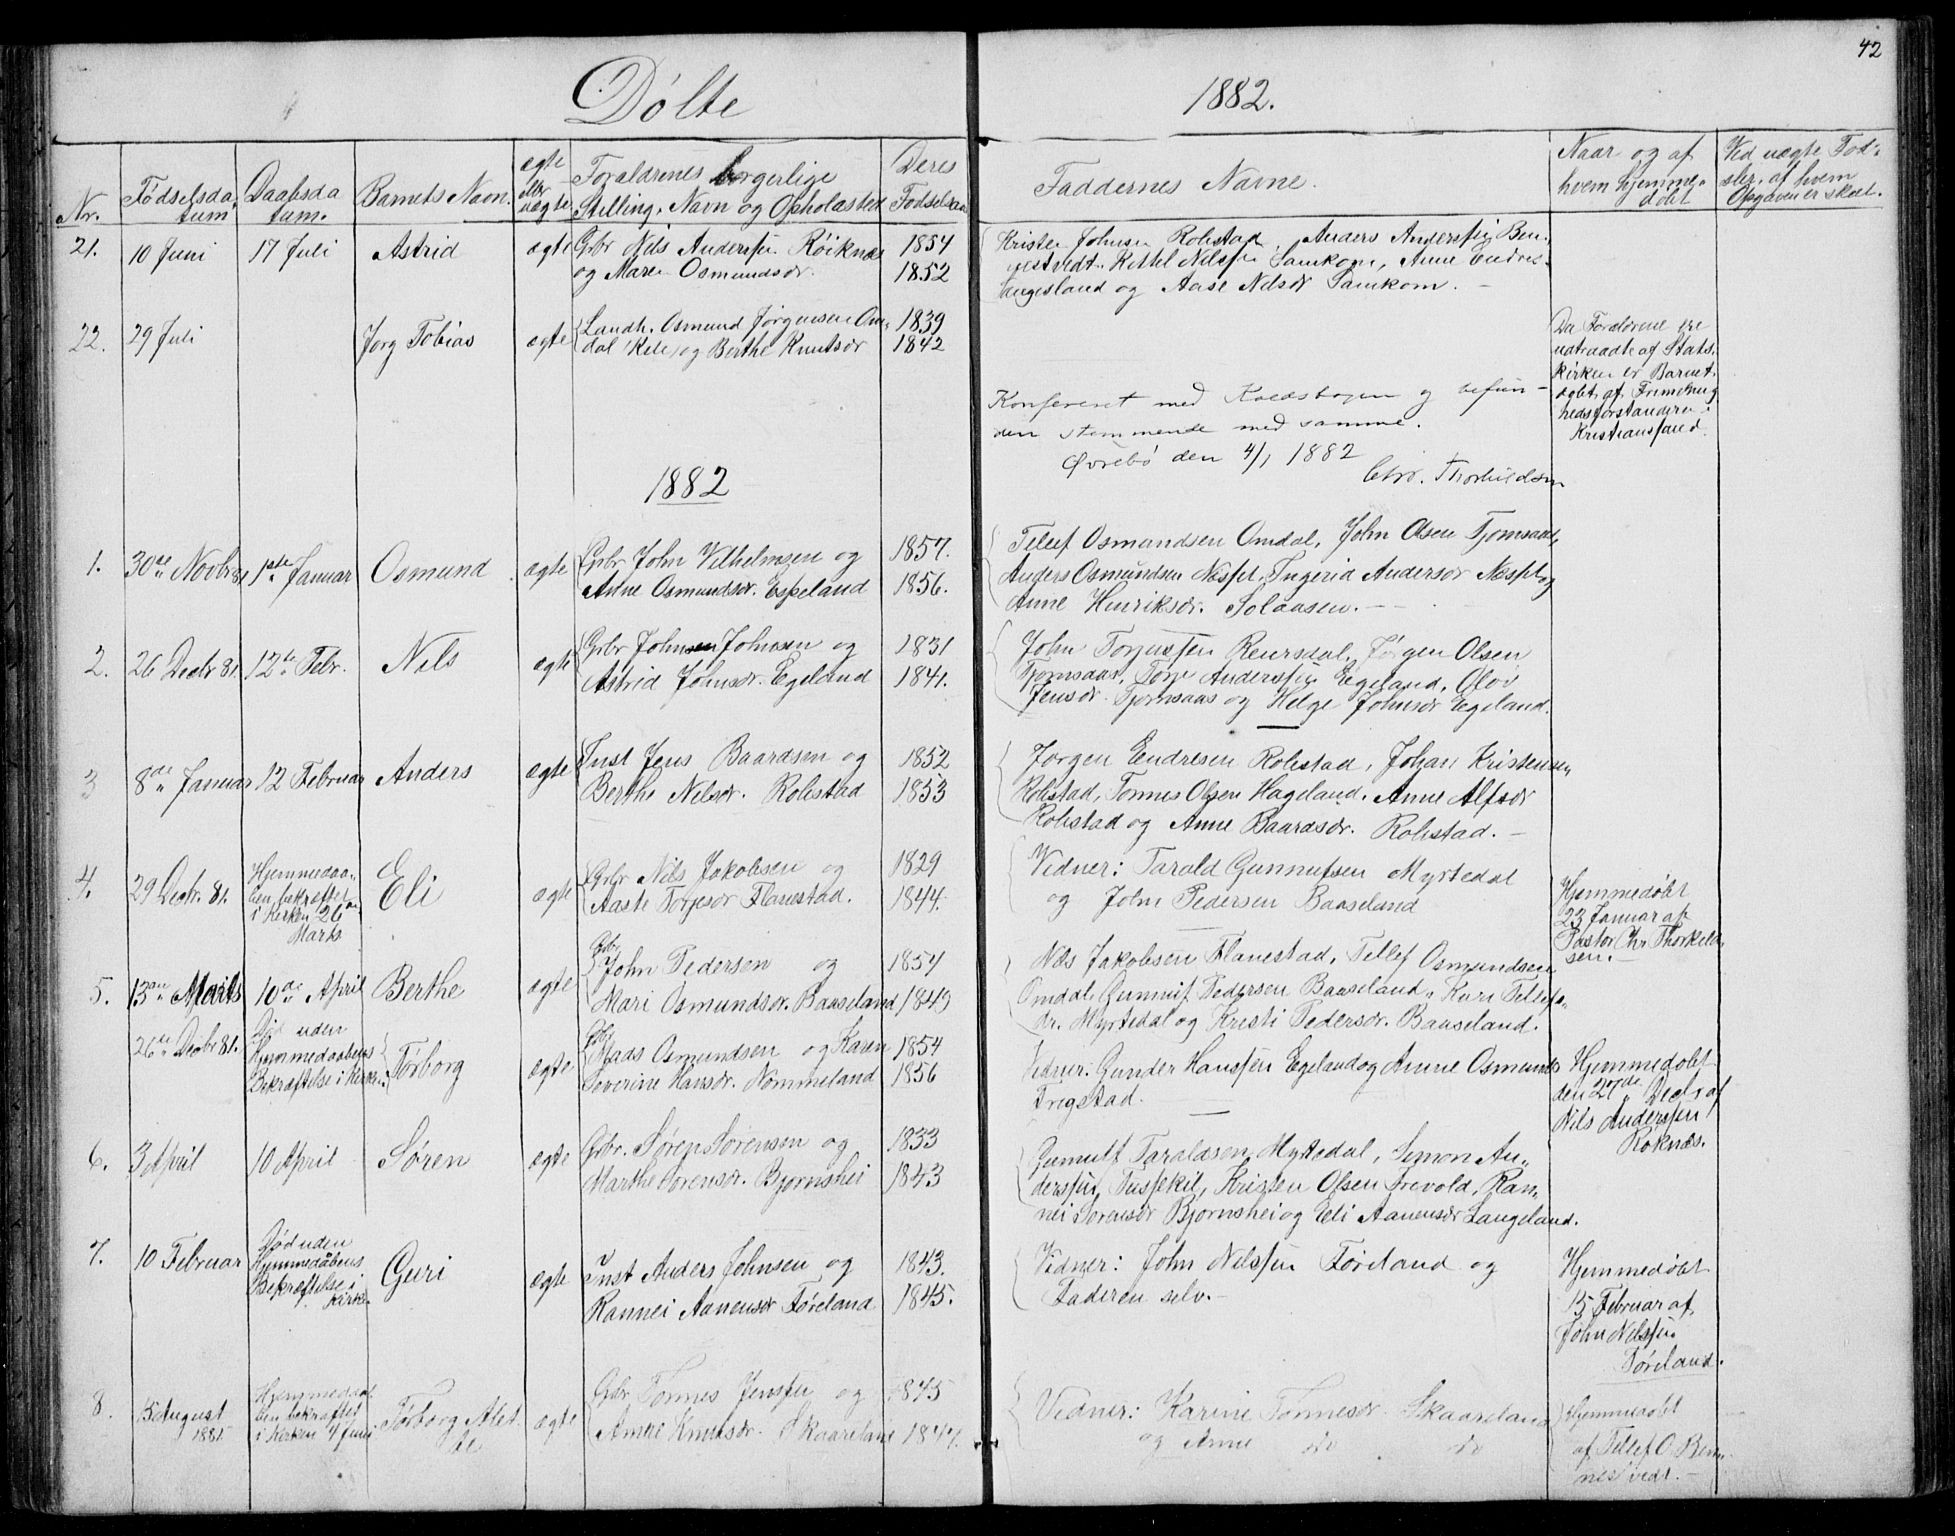 42
Døbte 1882.
Nr.
Fødselsda
tum
Daabsda
tum.
Barnets Navn.
ægte
eller
uægte
Forældrenes borgerlige
Stilling, Navn og Opholdsted
Deres
Fødselsaar
Faddernes Navne.
Naar og af
hvem hjemme-
døbt
Ved uægte Fød-
sler, af hvem
Opgaven er skeet.
21. 10 Juni 17 Juli Astrid ægte
Gbr Nils Anderssen Røiknæs 1854
og Maren Osmundsdr. 1852
Krister Johnsen Robstad, Anders Anderssen Ben-
nestvedt, Kittel Nilssen Samkom, Anne Endres-
Langesland og Aase Nilsdr Samkom. -
22. 29 Juli Jørg Tobias ægte
Landh. Osmund Jørgensen Om- 1839
dal Kile, og Berthe Knutsdr 1842
Da Forældrene ere
udtraadte af Stats-
kirken er Barnet
døbt af Frimenig
hedsforstanderen i
Kristianssand.
Konfereret med Kaldsbogen og befun-
den stemmende med samme.
Øvrebø den 4/1 1882
Chr. Thorkildsen
1882
1. 30te Novbr 81 1ste Januar Osmund ægte
Gbr John Vilhelmsen og 1857.
Anne Osmundsdr. Espeland 1856.
Tellef Osmundsen Omdal, John Olsen Tjomsaas,
Anders Osmundsen Næset, Ingerid Andersdr Næset og
Anne Henriksdr. Solaasen. -
2. 26 Decbr 81. 12te Febr. Nils ægte
Gbr Johnsen Johnsen og 1831
Astrid Johnsdr. Egeland 1841.
John Torjussen Reiersdal, Jørgen Olsen
Tjomsaas, Torje Anderssen Egeland, Olov
Jensdr. Tjomsaas og Helge Johnsdr Egeland.
3 8de Januar 12 Februar Anders ægte
Inst Jens Baardsen og 1852
Berthe Nilsdr. Robstad 1853
Jørgen Endresen Robstad, Johan Kristensen
Robstad, Tønnes Olsen Hageland, Anne Alfsdr
Robstad og Anne Baardsdr. Robstad. -
4. 29 Decbr. 81.
Hjemmedaa-
ben bekræftet
i Kirken 26de
Marts
Eli ægte
Gbr Nils Jakobsen og 1829
Aaste Torjesdr Flanestad. 1844.
Vidner: Tarald Gunnufsen Myrtedal
og John Pedersen Baaseland
Hjemmedøbt
23 Januar af
Pastor Chr Thorkild-
sen. -
5. 13de Marts 10de April Berthe ægte
Gbr
John Pedersen og 1854
Mari Osmundsdr. Baaseland 1849
Nils Jakobsen Flanestad, Tellef Osmundsen
Omdal, Gunnuf Pedersen Baaseland, Kari Tellefs-
dr. Myrtedal og Kristi Pedersdr. Baaseland.
26de Decbr 81.
Død uden
Hjemmedaabens
Bekræftelse i Kirken
Tørborg ægte
Gbr
Mads Osmundsen og Karen 1854
Severine Hansdr. Nommeland 1856
Vidner: Gunder Hanssen Egeland og Anne Osmunds
Fregstad.
Hjemmedøbt
den 27de Decbr af
Nils Anderssen
Røknæs.
6. 3 April 10 April Søren ægte
Gbr. Søren Sørensen og 1833
Marthe Sørensdr. Bjørnshei 1843
Gunnulf Taraldsen Myrtedal, Simon An-
derssen, Tussekil, Kristen Olsen Frevold, Ran-
nei Sørensdr Bjørnshei og Eli Aanensdr Langeland.
7. 10 Februar
Død uden
Hjemmedåbens
Bekræftelse i
Kirke.
Guri ægte
Inst Anders Johnsen og 1843.
Rannei Aanensdr Føreland 1845.
Vidner: John Nilssen Føreland og
Faderen selv. -
Hjemmedøbt
15 Februar af
John Nilssen
Føreland.
8. 15 August
1881.
Hjemmedaa
ben bekræftet
i Kirken 4 Juni
Tørborg Alet
te
ægte
Gbr Tønnes Jenssen og 1845
Anne Knutsdr. Skaareland 1847.
Vidner: Karine Tønnesdr Skaareland
og Anne do do
Hjemmedøbt
af Tellef O. Ben-
nestvedt. -